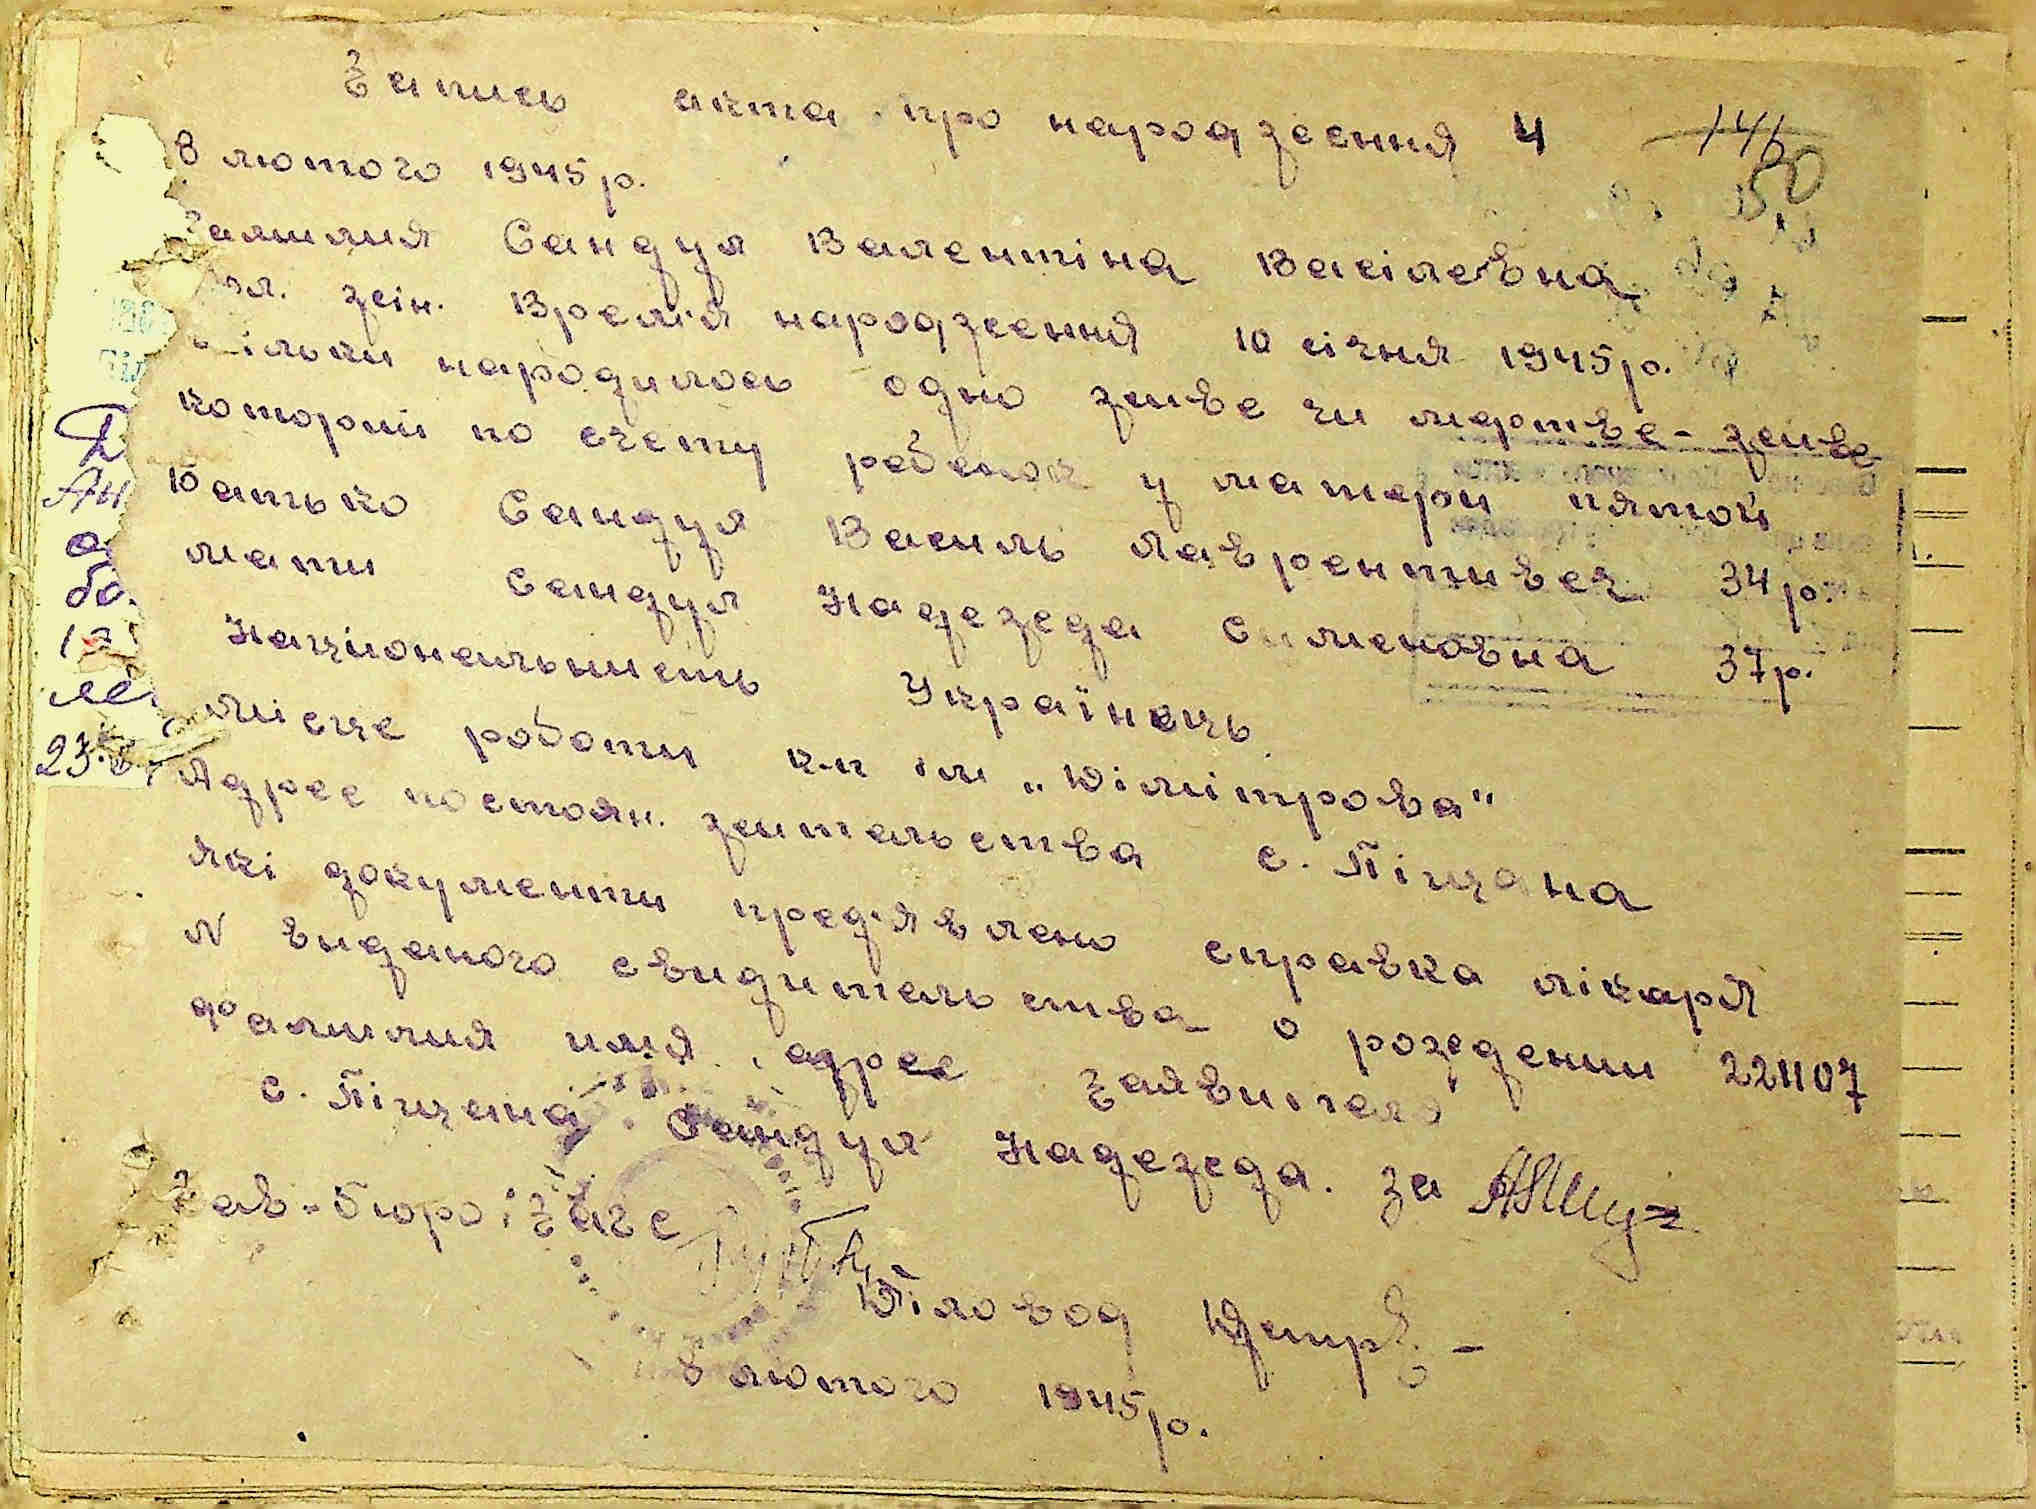 Запись акта про народження 4
146
50
8 лютого 1945 р.
Фамилия Сандул Валентіна Васілевна
Пол. жін. Время народження 10 січня 1945 р.
скільки народилось одно живе чи мертве - живе
которий по счету ребенок у матери пятой
Батько Сандул Василь Лаврентивеч 34 р.
мати Сандул Надежда Сименовна 37 р.
Национальнисть Українець
місце роботи к-п ім „Дімітрова"
Адрес постоян. жительства с. Піщана
які документи предявлено справка лікаря
N виданого свидительства о рождении 221107
Фамилия имя, адрес заявителя
с. Піщана Сандул Надежда. за
Зав. бюро ЗАГС
Діловод
8 лютого 1945 р.